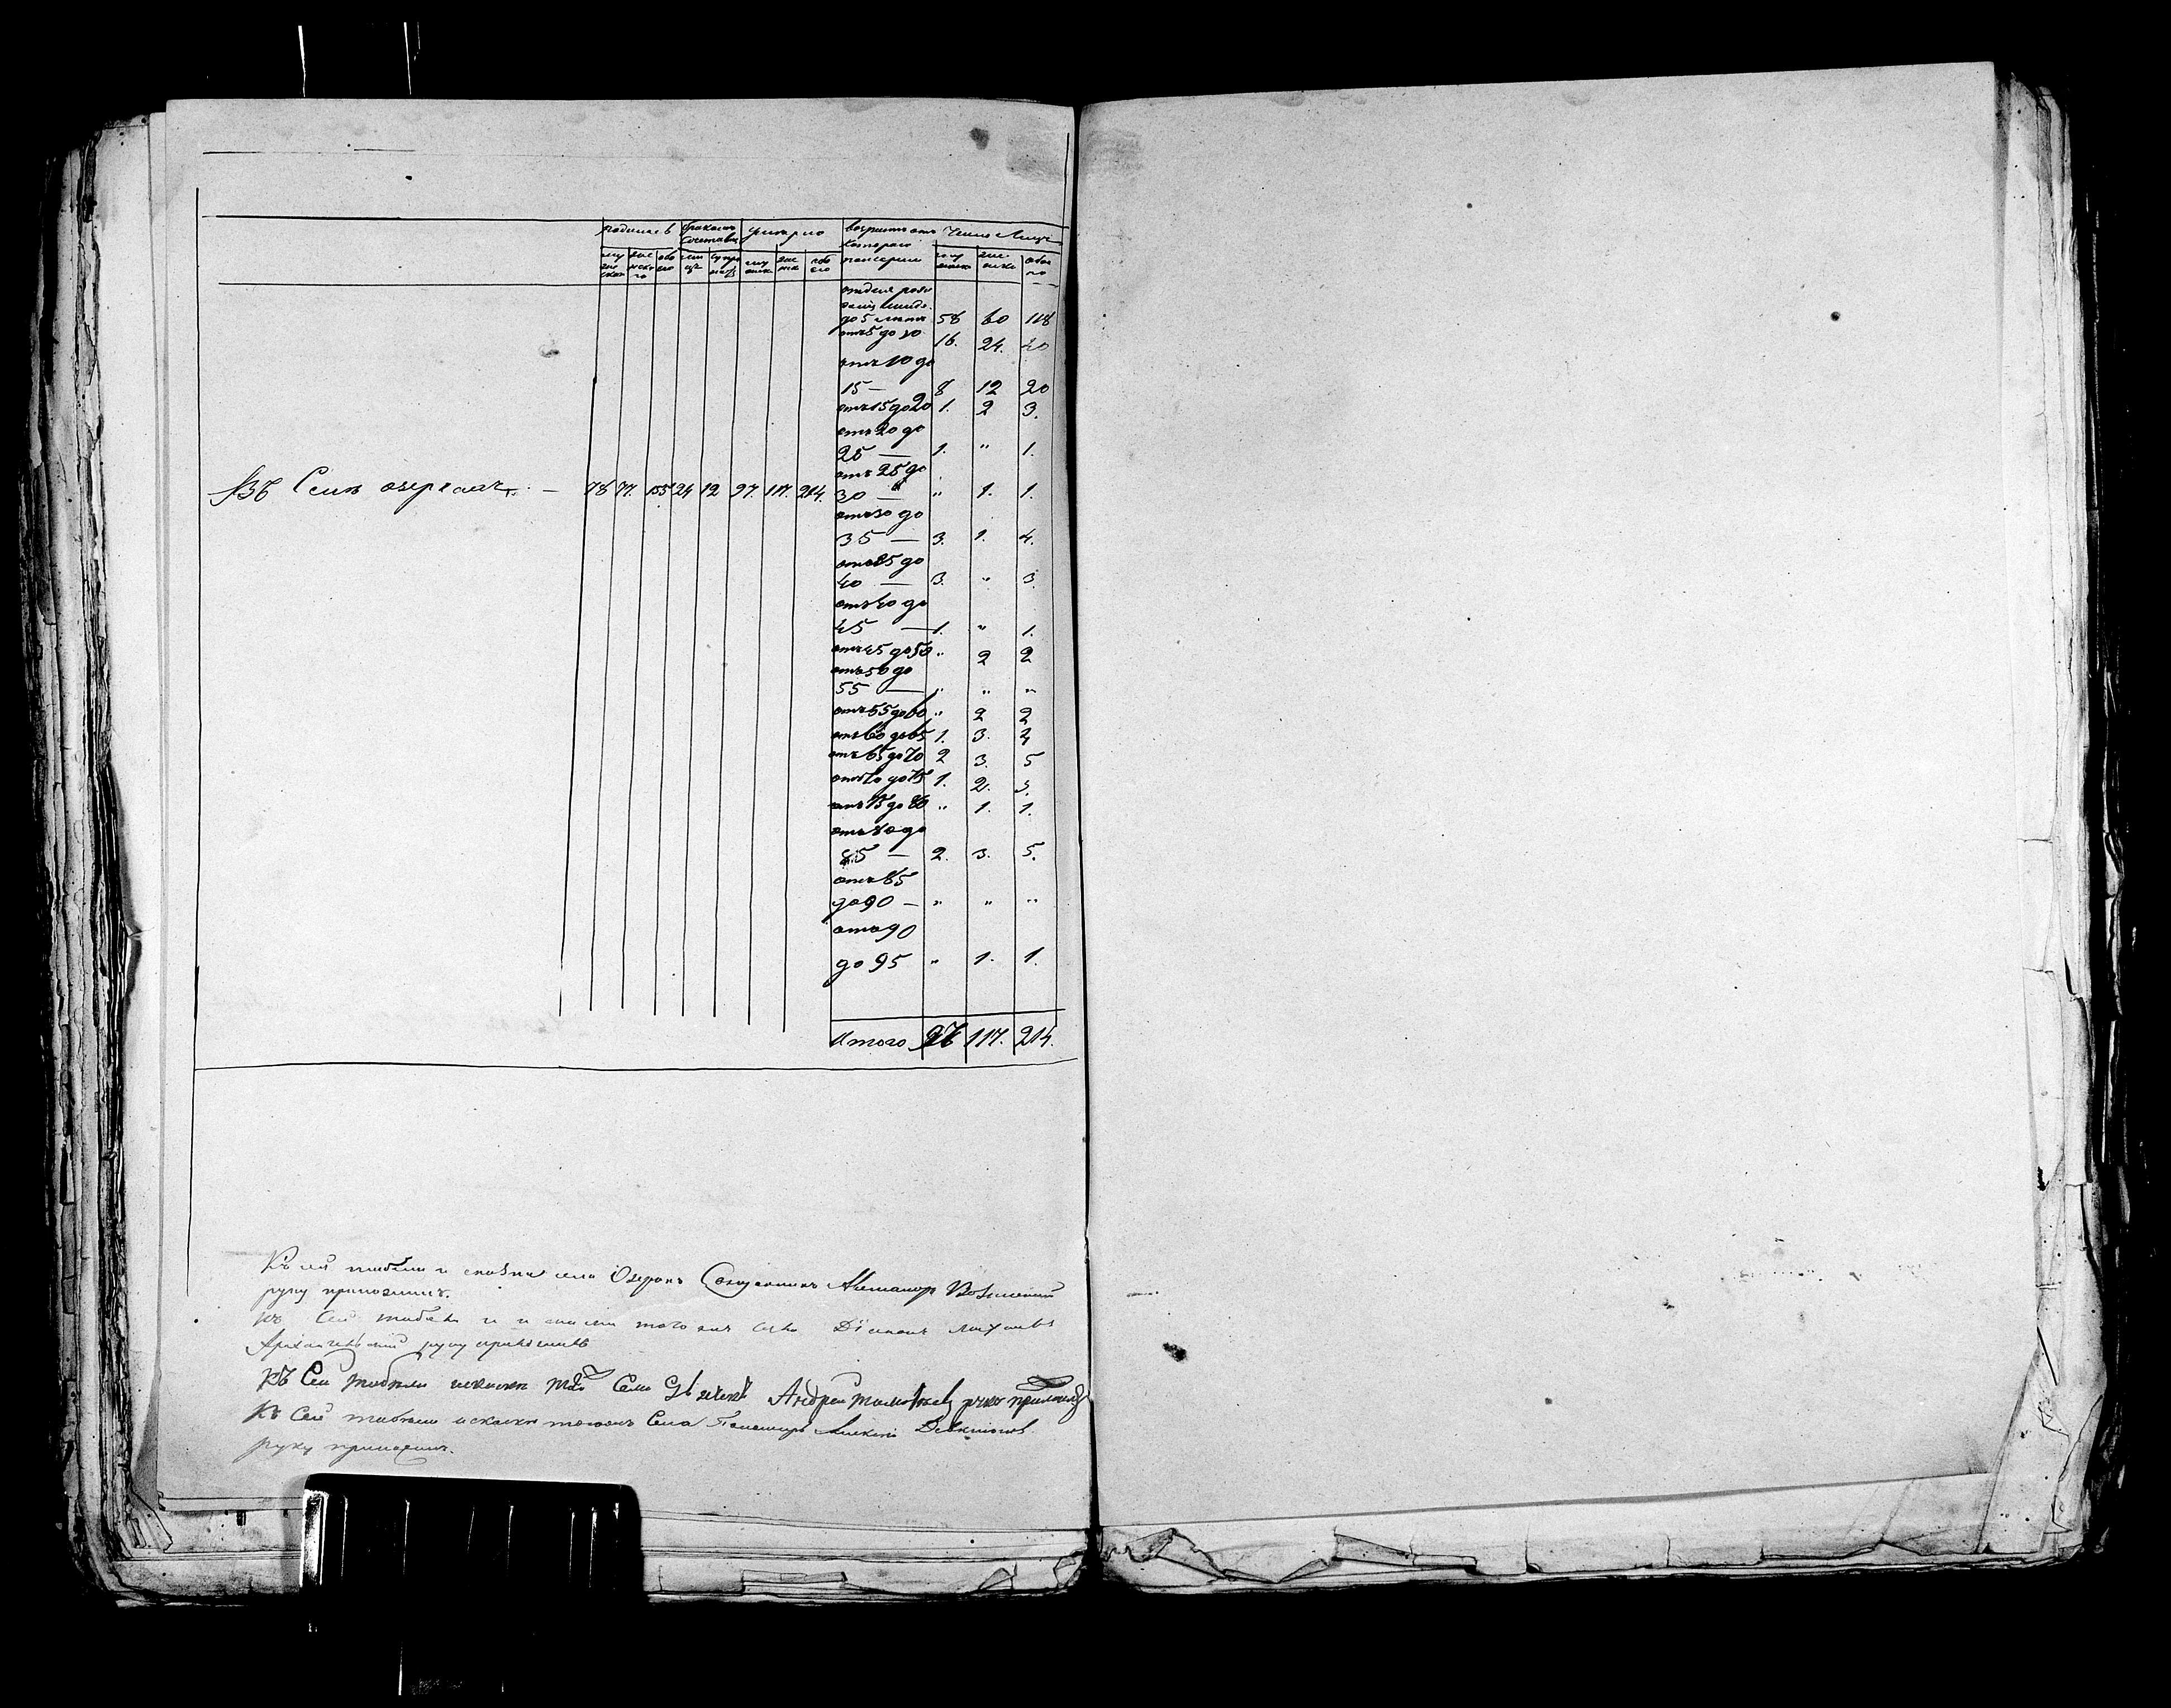 родилось бракомъ сочетавш умерло возрастъ отъ котораго Число Лицъ
му жес каго жен ска го обо его лиц супр му жеск жен ск обо его му жеска жен ска обое го
до 5 лѣтъ 58 60 118
отъ 5 до 10 16. 24. 40
отъ 10 до
15 — 8 12 20
отъ 15 до 20 1. 2 3.
отъ 20 до
25 — 1. „ 1.
отъ 25 до
Въ Селѣ озеркахъ — 78 77. 155 24 12 97. 117. 214. 30 — „ 1. 1.
отъ 30 до
35 — 3. 1. 4.
отъ 35 до
40 — 3. „ 3
отъ 40 до
45 — 1. „ 1.
отъ 45 до 50 „ 2 2
отъ 50 до
55 — „ „ „
отъ 55 до 60 „ 2 2
отъ 60 до 65 1. 3. 4
отъ 65 до 70 2 3. 5
отъ 70 до 75 1. 2. 3.
отъ 75 до 80 „ 1. 1.
отъ 80 до
85 — 2. 3. 5.
отъ 85
до 90 — „ „ „
отъ 90
до 95 „ 1. 1.
Итого 97 117. 214.
Къ сей табели и сказки села Озерокъ Священникъ Александръ
руку приложилъ.
къ Сей табели и тогожъ села Діаконъ
Архангельскій руку приложилъ
Къ Сей табели Села Андрей руку приложилъ
Къ Сей табели и сказки тогожъ Села Пономарь Алексей
руку приложилъ.